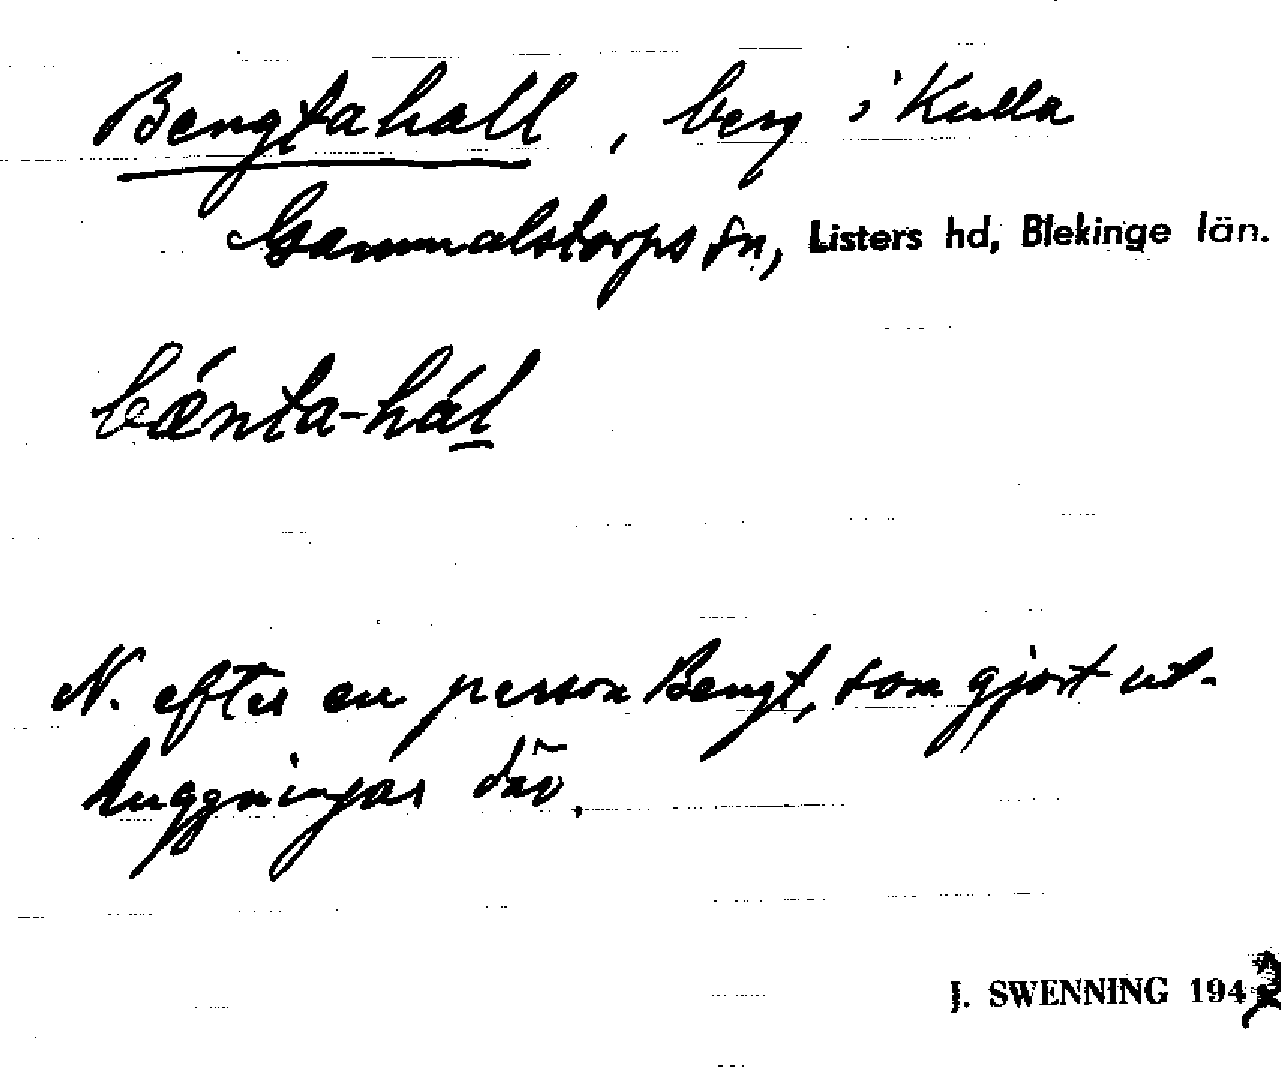 Bengtahall, berg i Kulla
Gammalstorps sn, Listers hd, Blekinge län.
bǽnta-hál
N. efter en person Bengt, som gjort ut-
huggningar där.
J. SWENNING 1942